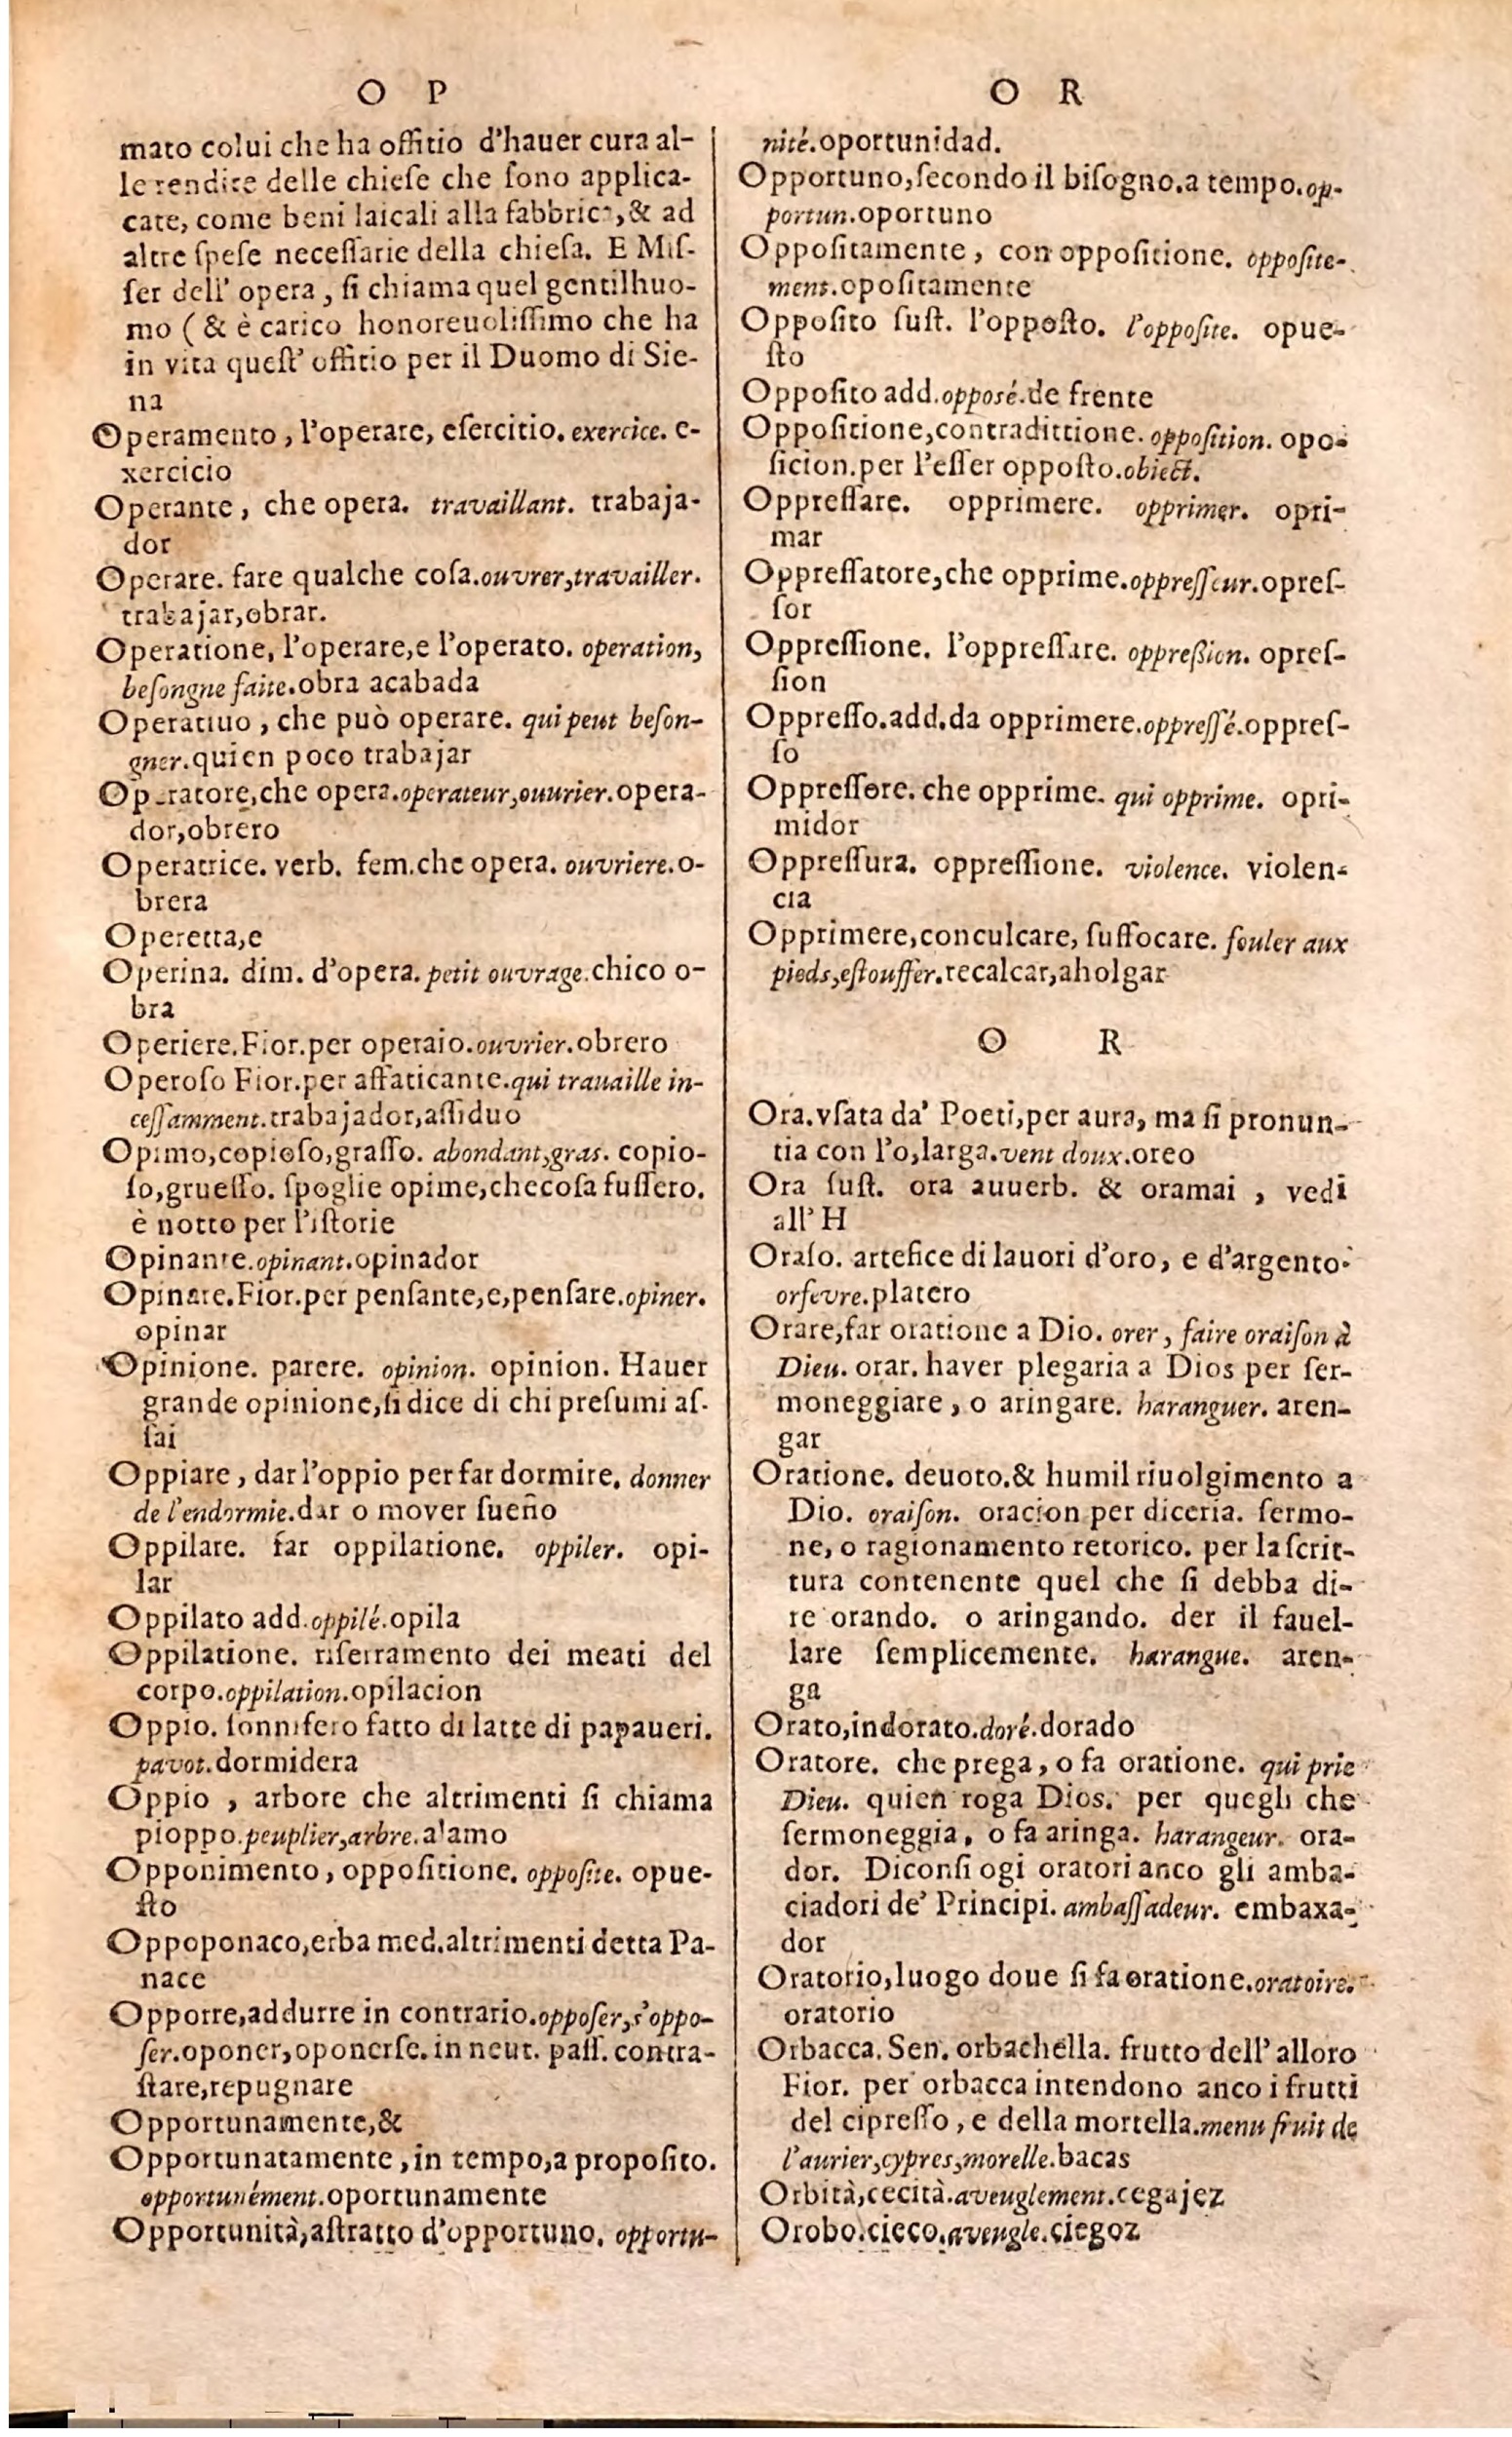 O P
mato colui che ha offitio d'hauer cura al-
le rendite delle chieſe che ſono applica-
cate, come beni laicali alla fabbrica,& ad
altre ſpeſe neceſſarie della chieſa. E Miſ-
ſer dell' opera, ſi chiama quel gentilhuo-
mo ( & è carico honoreuoliſſimo che ha
in vita queſt' offitio per il Duomo di Sie-
na
Operamento, l'operare, eſercitio. exercice. e-
xercicio
Operante, che opera. travaillant. trabaja-
dor
Operare. fare qualche coſa.ouvrer,travailler.
trabajar,obrar.
Operatione, l'operare,e l'operato. operation,
beſongne faite.obra acabada
Operatiuo, che può operare. qui peut beſon-
gner.quien poco trabajar
Operatore,che opera.operateur,ouurier.opera-
dor,obrero
Operatrice. verb. fem.che opera. ouvriere.o-
brera
Operetta,e
Operina. dim. d'opera.petit ouvrage.chico o-
bra
Operiere.Fior.per operaio.ouvrier.obrero
Operoſo Fior.per affaticante.qui trauaille in-
ceſſamment.trabajador,aſſiduo
Opimo,copioſo,graſſo. abondant,gras. copio-
ſo,grueſſo. ſpoglie opime,checoſa fuſſero.
è notto per l'iſtorie
Opinante.opinant.opinador
Opinare.Fior.per penſante,e,penſare.opiner.
opinar
Opinione. parere. opinion. opinion. Hauer
grande opinione,ſi dice di chi preſumi aſ-
ſai
Oppiare, dar l'oppio per far dormire. donner
de l'endormie.dar o mover ſueño
Oppilare. far oppilatione. oppiler. opi-
lar
Oppilato add.oppilé.opila
Oppilatione. riſerramento dei meati del
corpo.oppilation.opilacion
Oppio. ſonnifero fatto di latte di papaueri.
pavot.dormidera
Oppio , arbore che altrimenti ſi chiama
pioppo.peuplier,arbre.alamo
Opponimento, oppoſitione. oppoſite. opue-
ſto
Oppoponaco,erba med.altrimenti detta Pa-
nace
Opporre,addurre in contrario.oppoſer,s'oppo-
ſer.oponer,oponerſe.in neut. paſſ. contra-
ſtare,repugnare
Opportunamente,&
Opportunatamente,in tempo,a propoſito.
opportunément.oportunamente
Opportunità,aſtratto d'opportuno. opportu-
O R
nité.oportunidad.
Opportuno,ſecondo il biſogno.a tempo.op-
portun.oportuno
Oppoſitamente, con oppoſitione. oppoſite-
ment.opoſitamente
Oppoſito ſuſt. l'oppoſto. l'oppoſite. opue-
ſto
Oppoſito add.opposé.de frente
Oppoſitione,contradittione. oppoſition. opo-
ſicion.per l'eſſer oppoſto.obiect.
Oppreſſare. opprimere. opprimer. opri-
mar
Oppreſſatore,che opprime.oppreſſeur.opreſ-
ſor
Oppreſſione. l'oppreſſare. oppreßion. opreſ-
ſion
Oppreſſo.add.da opprimere.oppreſſé.oppreſ-
ſo
Oppreſſore. che opprime. qui opprime. opri-
midor
Oppreſſura. oppreſſione. violence. violen-
cia
Opprimere,conculcare, ſuffocare. fouler aux
pieds,eſtouffer.recalcar,aholgar
O R
Ora.vſata da' Poeti,per aura, ma ſi pronun-
tia con l'o,larga.vent doux.oreo
Ora ſuſt. ora auuerb. & oramai , vedi
all' H
Oraſo. artefice di lauori d'oro, e d'argento.
orfevre.platero
Orare,far oratione a Dio. orer, faire oraiſon à
Dieu. orar. haver plegaria a Dios per ſer-
moneggiare, o aringare. haranguer. aren-
gar
Oratione. deuoto.& humil riuolgimento a
Dio. oraiſon. oracion per diceria. ſermo-
ne, o ragionamento retorico. per la ſcrit-
tura contenente quel che ſi debba di-
re orando. o aringando. der il fauel-
lare ſemplicemente. harangue. aren-
ga
Orato,indorato.doré.dorado
Oratore. che prega, o fa oratione. qui prie
Dieu. quien roga Dios. per quegli che
ſermoneggia, o fa aringa. harangeur. ora-
dor. Diconſi ogi oratori anco gli amba-
ciadori de' Principi. ambaſſadeur. embaxa-
dor
Oratorio,luogo doue ſi fa oratione.oratoire.
oratorio
Orbacca. Sen. orbachella. frutto dell' alloro
Fior. per orbacca intendono anco i frutti
del cipreſſo, e della mortella.menu fruit de
l'aurier,cypres,morelle.bacas
Orbità,cecità.aveuglement.cegajez
Orobo.cieco.aveugle.ciegoz